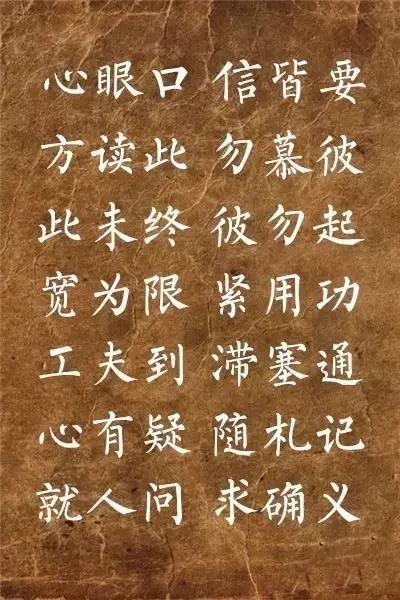 心眼口 信皆要
方读此 勿慕彼
此未终 彼勿起
宽为限 紧用功
工夫到 滞塞通
心有疑 随札记
就人问 求确义